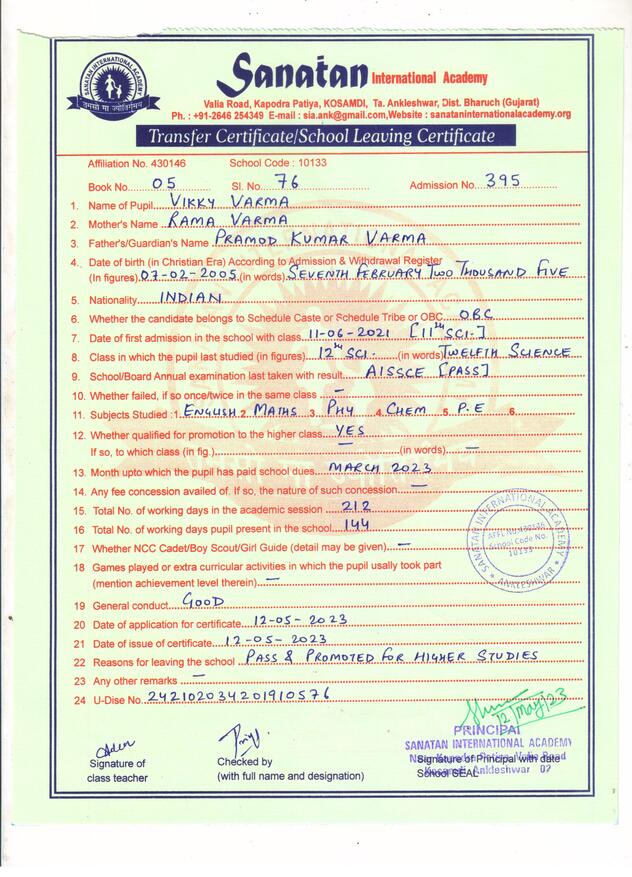 SANATAN INTERNATIONAL ACADEMY
तमसो मा ज्योतिर्गमय
Sanatan International Academy
Valia Road, Kapodra Patiya, KOSAMDI, Ta. Ankleshwar, Dist. Bharuch (Gujarat)
Ph. : +91-2646 254349 E-mail : sia.ank@gmail.com,Website : sanataninternationalacademy.org
Transfer Certificate/School Leaving Certificate
Affiliation No. 430146 School Code : 10133
Book No. 05 Sl. No. 76 Admission No. 395
1. Name of Pupil VIKKY VARMA
2. Mother's Name RAMA VARMA
3. Father's/Guardian's Name PRAMOD KUMAR VARMA
4. Date of birth (in Christian Era) According to Admission & Withdrawal Register
(In figures) 07-02-2005 (in words) SEVENTH FEBRUARY TWO THOUSAND FIVE
5. Nationality INDIAN
6. Whether the candidate belongs to Schedule Caste or Schedule Tribe or OBC OBC
7. Date of first admission in the school with class 11-06-2021 [11th SCI.]
8. Class in which the pupil last studied (in figures) 12th SCI. (in words) TWELFTH SCIENCE
9. School/Board Annual examination last taken with result AISSCE [PASS]
10. Whether failed, if so once/twice in the same class —
11. Subjects Studied :1. ENGLISH 2. MATHS 3. PHY 4. CHEM 5. P.E 6.
12. Whether qualified for promotion to the higher class YES
If so, to which class (in fig.) — (in words) —
13. Month upto which the pupil has paid school dues MARCH 2023
14. Any fee concession availed of. If so, the nature of such concession —
15. Total No. of working days in the academic session 212
16 Total No. of working days pupil present in the school 144
17 Whether NCC Cadet/Boy Scout/Girl Guide (detail may be given) —
18 Games played or extra curricular activities in which the pupil usally took part
(mention achievement level therein) —
19 General conduct GOOD
20 Date of application for certificate 12-05-2023
21 Date of issue of certificate 12-05-2023
22 Reasons for leaving the school PASS & PROMOTED FOR HIGHER STUDIES
23 Any other remarks —
24 U-Dise No. 242102034201910576
SANATAN INTERNATIONAL ACADEMY
AFFL No. 430146
School Code No.
10133
ANKLESHWAR
12/May/23
PRINCIPAL
SANATAN INTERNATIONAL ACADEMY
Signature of
class teacher
Checked by
(with full name and designation)
Signature of Principal with date
School SEAL
Kosamdi Ankleshwar 02